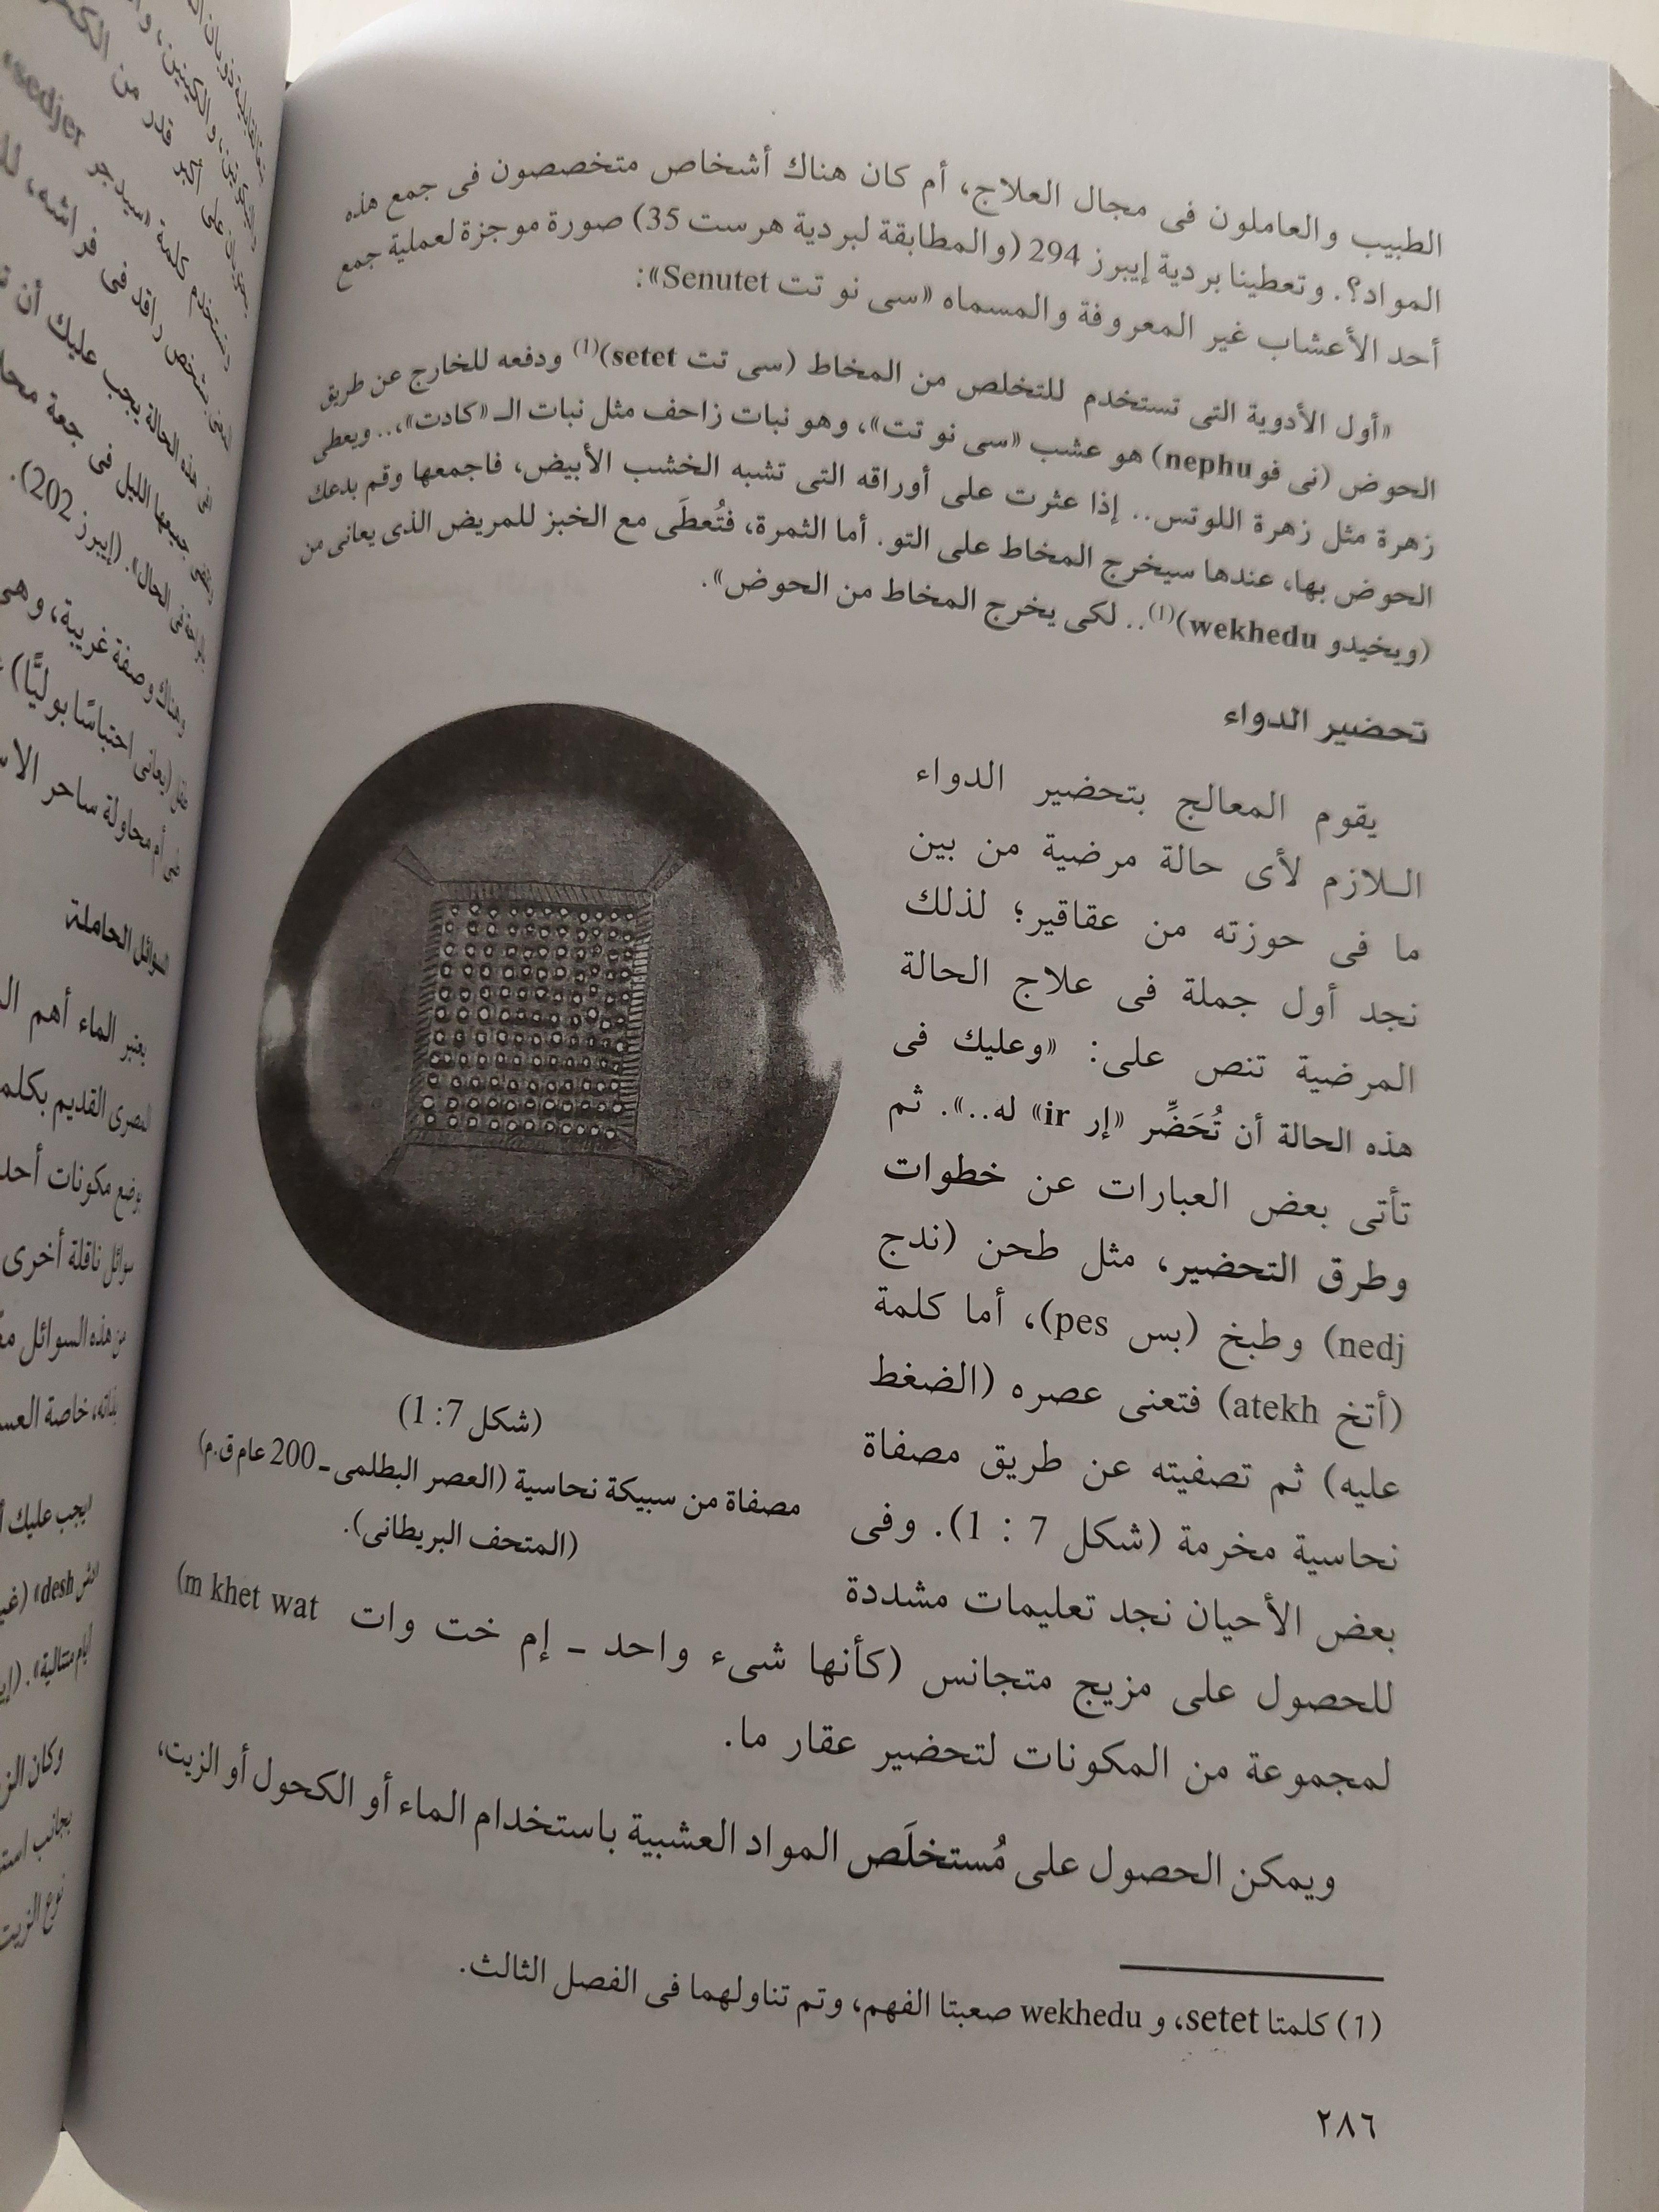 الطبيب والعاملون فى مجال العلاج، أم كان هناك أشخاص متخصصون فى جمع هذه
المواد؟. وتعطينا بردية إيبرز 294 (والمطابقة لبردية هرست 35) صورة موجزة لعملية جمع
أحد الأعشاب غير المعروفة والمسماه «سى نو تت Senutet»:
«أول الأدوية التى تستخدم للتخلص من المخاط (سى تت setet)(1) ودفعه للخارج عن طريق
الحوض (نى فو nephu) هو عشب «سى نو تت»، وهو نبات زاحف مثل نبات الـ «كادت»،.. ويعطى
زهرة مثل زهرة اللوتس.. إذا عثرت على أوراقه التى تشبه الخشب الأبيض، فاجمعها وقم بدعك
الحوض بها، عندها سيخرج المخاط على التو. أما الثمرة، فتُعطَى مع الخبز للمريض الذى يعانى من
(ويخيدو wekhedu)(1).. لكى يخرج المخاط من الحوض».
تحضير الدواء
يقوم المعالج بتحضير الدواء
الـلازم لأى حالة مرضية من بين
ما فى حوزته من عقاقير؛ لذلك
نجد أول جملة فى علاج الحالة
المرضية تنص على: «وعليك فى
هذه الحالة أن تُحَضِّر «إر ir» له..». ثم
تأتى بعض العبارات عن خطوات
وطرق التحضير، مثل طحن (ندج
nedj) وطبخ (بس pes)، أما كلمة
(أتخ atekh) فتعنى عصره (الضغط
عليه) ثم تصفيته عن طريق مصفاة
نحاسية مخرمة (شكل 7 : 1). وفى
بعض الأحيان نجد تعليمات مشددة
(شكل 7: 1)
مصفاة من سبيكة نحاسية (العصر البطلمى ـ 200 عام ق.م)
(المتحف البريطانى).
للحصول على مزيج متجانس (كأنها شىء واحد ـ إم خت وات m khet wat)
لمجموعة من المكونات لتحضير عقار ما.
ويمكن الحصول على مُستخلَص المواد العشبية باستخدام الماء أو الكحول أو الزيت،
(1) كلمتا setet، و wekhedu صعبتا الفهم، وتم تناولهما فى الفصل الثالث.
٢٨٦
sedjer
فى هذه الحالة يجب عليك أن
فى الحال». (إيبرز 202).
وهناك وصفة غريبة، وهى
(يعانى احتباسًا بوليًّا)
السوائل الحاملة
يعتبر الماء أهم
المصرى القديم
سوائل ناقلة أخرى
من هذه السوائل
يجب عليك
desh»
وكان